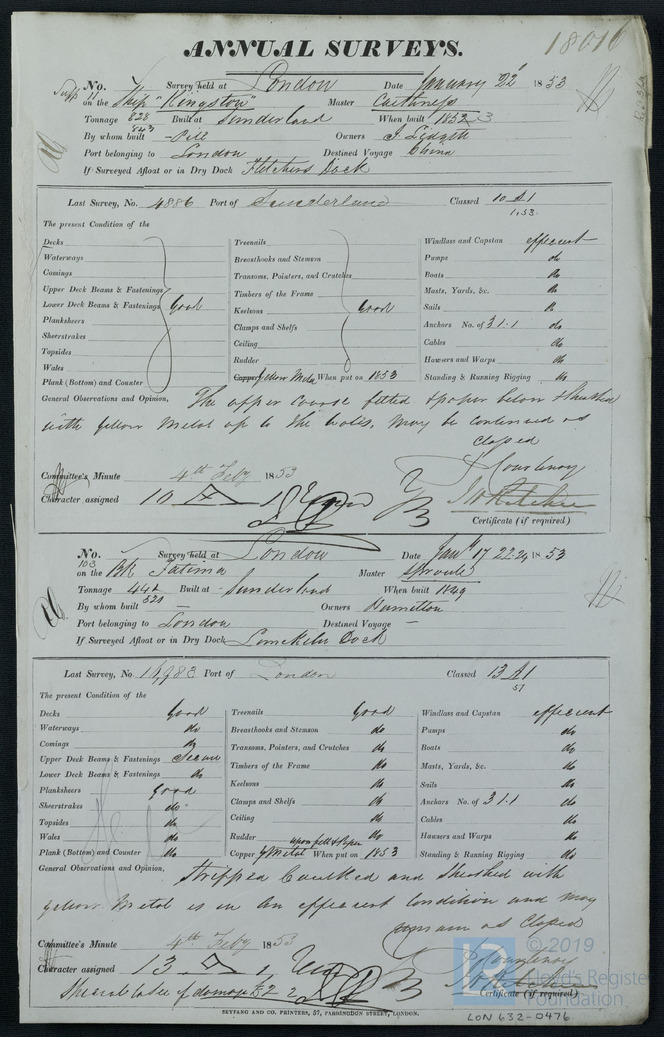 ANNUAL SURVEYS.
18016
No. Survey held at London Date January 22 1853
on the Ship "Kingston" Master Caithness
Tonnage 828 Built at Sunderland When built 1852
843
By whom built Pile Owners
Port belonging to London Destined Voyage China
If Surveyed Afloat or in Dry Dock Fletchers Dock
Last Survey, No. 4886 Port of Sunderland Classed 10 A1
1,53.
The present Condition of the
Decks
Waterways
Comings
Upper Deck Beams & Fastenings
Lower Deck Beams & Fastenings Good
Planksheers
Sheerstrakes
Topsides
Wales
Plank (Bottom) and Counter
Treenails
Breasthooks and Stemson
Transoms, Pointers, and Crutches
Timbers of the Frame
Keelsons Good
Clamps and Shelfs
Ceiling
Rudder
Copper Yellow Metal When put on 1853
Windlass and Capstan efficient
Pumps do
Boats do
Masts, Yards, &c. do
Sails do
Anchors No. of 3.1.1 do
Cables do
Hawsers and Warps do
Standing & Running Rigging do
General Observations and Opinion, The upper course felted & paper below & sheathed
with yellow Metal up to the bends, may be continued as
classed
Committee's Minute 4th Feby 1853
Character assigned 10 A 1
Certificate (if required)
No. Survey held at London Date Jany 17 22.24 1853
103
on the Bk Fatima Master Sproule
Tonnage 442 Built at Sunderland When built 1849
521
By whom built — Owners Hamilton
Port belonging to London Destined Voyage —
If Surveyed Afloat or in Dry Dock Limekiln Dock
Last Survey, No. Port of London Classed 13 A1
51
The present Condition of the
Decks Good
Waterways do
Comings do
Upper Deck Beams & Fastenings Secure
Lower Deck Beams & Fastenings do
Planksheers good
Sheerstrakes do
Topsides do
Wales do
Plank (Bottom) and Counter do
Treenails Good
Breasthooks and Stemson do
Transoms, Pointers, and Crutches do
Timbers of the Frame do
Keelsons do
Clamps and Shelfs do
Ceiling do
Rudder do
upon felt & paper
Copper Y Metal When put on 1853
Windlass and Capstan efficient
Pumps do
Boats do
Masts, Yards, &c. do
Sails do
Anchors No. of 3.1.1 do
Cables do
Hawsers and Warps do
Standing & Running Rigging do
General Observations and Opinion, Stripped Caulked and Sheathed with
yellow Metal is in an efficient condition and may
remain as Classed
Committee's Minute 4th Feby 1853
Character assigned 13 A 1
Certificate (if required)
SEYFANG AND CO. PRINTERS, 57, FARRINGDON STREET, LONDON.
©2019
Lloyd's Register
Foundation
LON 632-0476